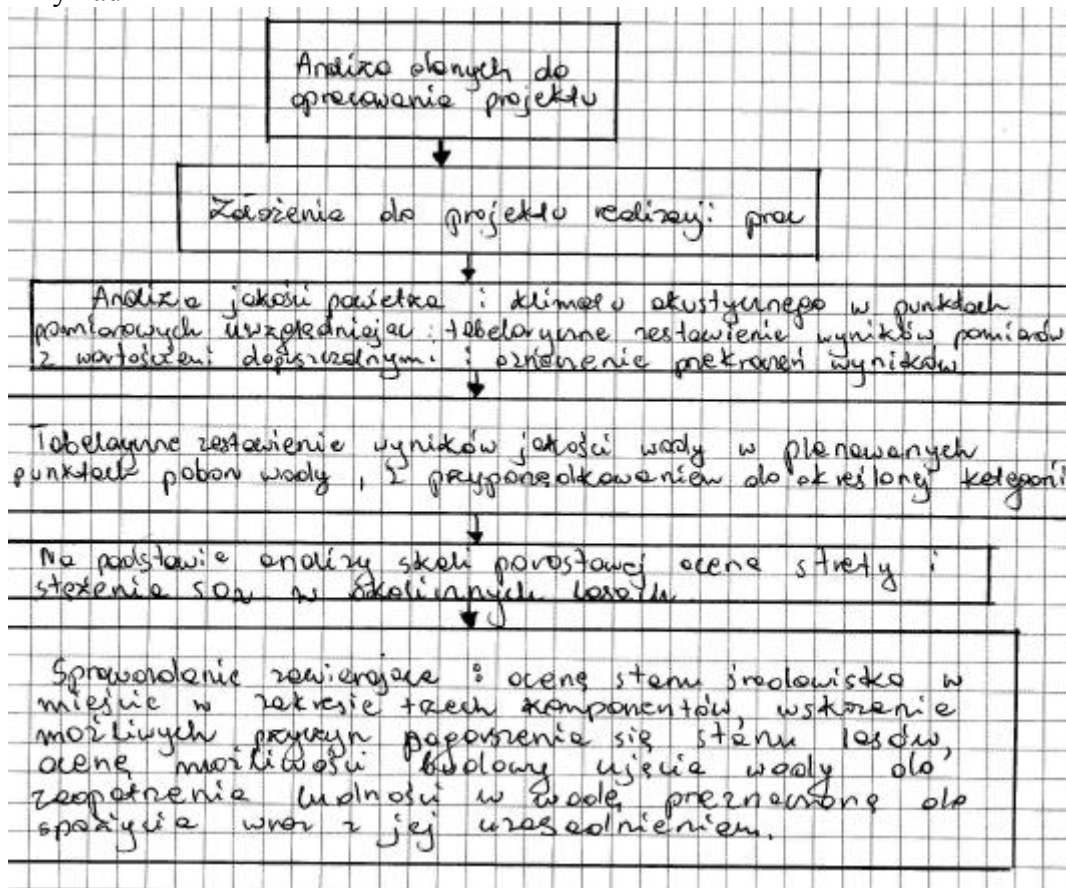 Analiza danych do
opracowania projektu
Założenia do projektu realizacji prac
Analiza jakości powietrza i klimatu akustycznego w punktach
pomiarowych uwzględniając: tabelaryczne zestawienie wyników pomiarów
z wartościami dopuszczalnymi i oznaczenie przekroczeń wyników
Tabelaryczne zestawienie wyników jakości wody w planowanych
punktach poboru wody, z przyporządkowaniem do określonej kategorii
Na podstawie analizy skali porostowej ocena strefy i
stężenia SO2 w okolicznych lasach
Sprawozdanie zawierające: ocenę stanu środowiska w
mieście w zakresie trzech komponentów, wskazanie
możliwych przyczyn pogorszenia się stanu lasów,
ocenę możliwości budowy ujęcia wody do
zaopatrzenia ludności w wodę przeznaczoną do
spożycia wraz z jej uzasadnieniem.